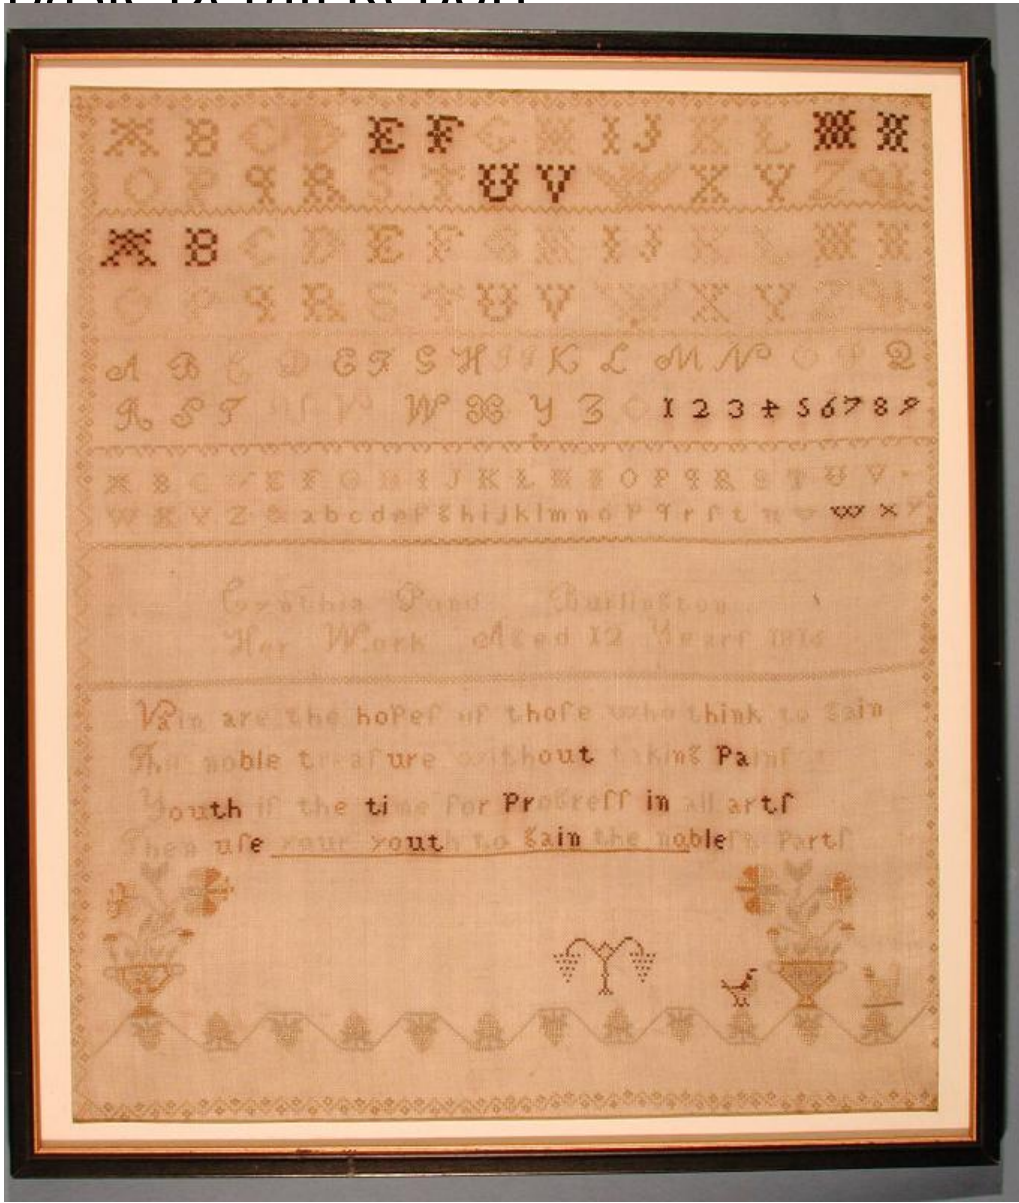 A B C D E F G H I J K L M N
O P Q R S T U V W X Y Z &
A B C D E F G H I J K L M N
O P Q R S T U V W X Y Z &
A B C D E F G H I J K L M N O P Q
R S T U V W X Y Z 1 2 3 4 5 6 7 8 9
A B C D E F G H I J K L M N O P Q R S T U V
W X Y Z & a b c d e f g h i j k l m n o p q r ſ t u v w x y
Cynthia Pond Burlington
Her Work Aged 12 Yearſ 1816
Vain are the hopeſ of thoſe who think to gain
The noble treaſure without taking Painſ
Youth iſ the time for Progreſſ in all artſ
Then uſe your youth to gain the nobleſt Partſ